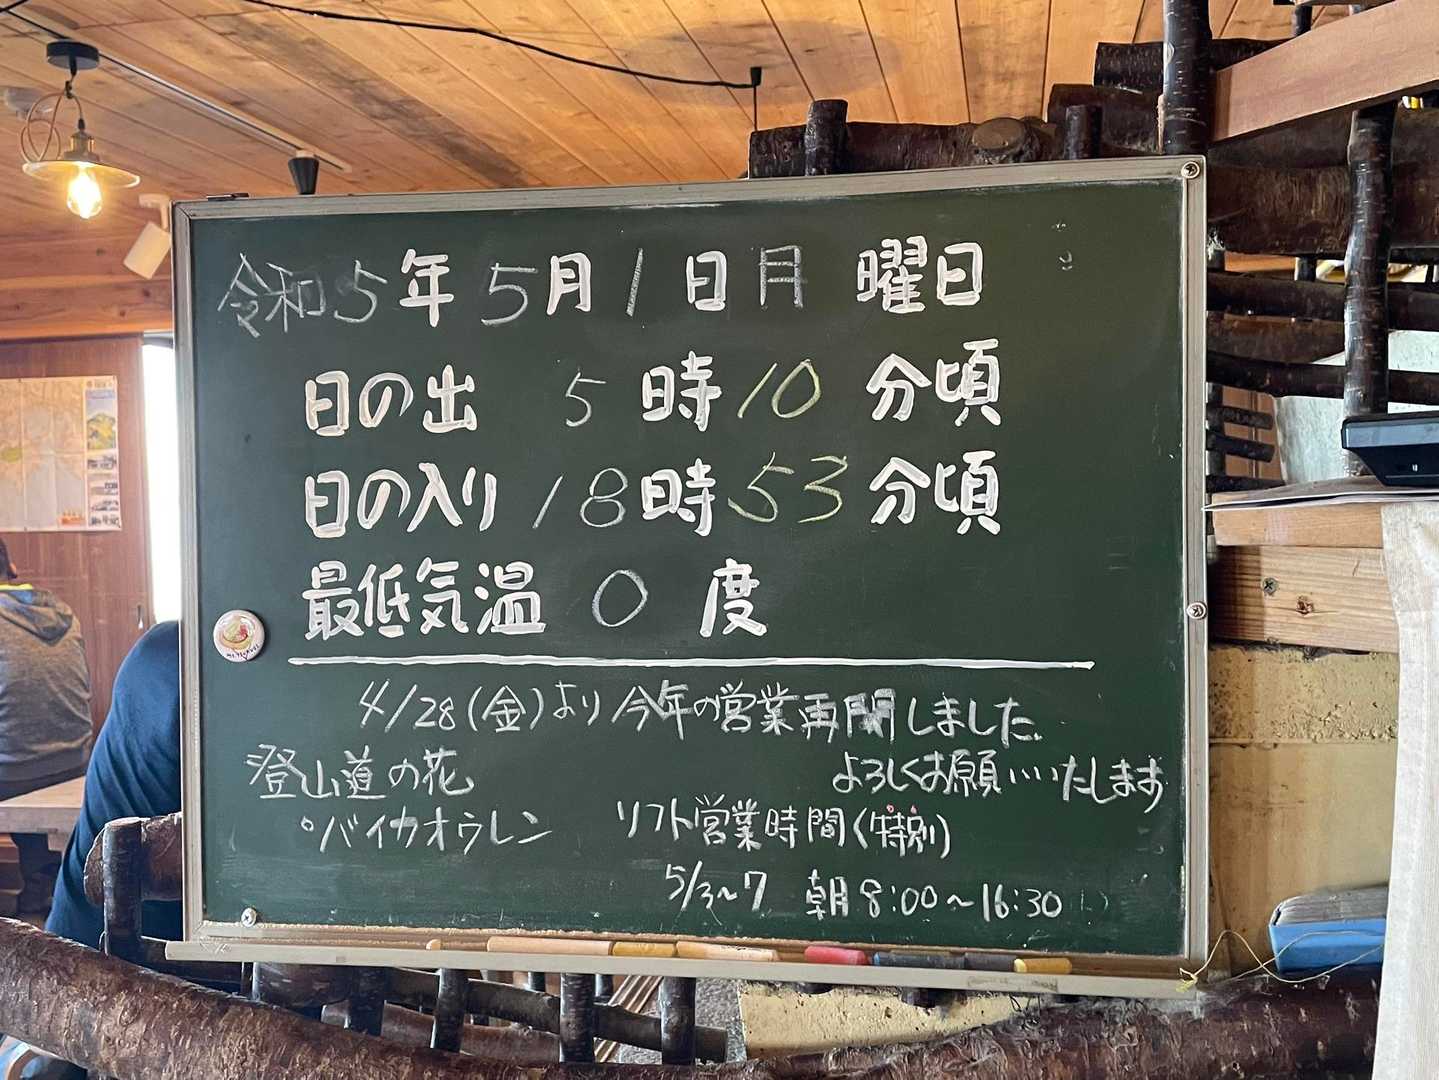 令和5年5月1日月曜日
日の出 5時10分頃
日の入り 18時53分頃
最低気温 0度
4/28(金)より今年の営業再開しました。
よろしくお願いいたします
登山道の花
。バイカオウレン
リフト営業時間(特別)
5/3~7 朝8:00~16:30